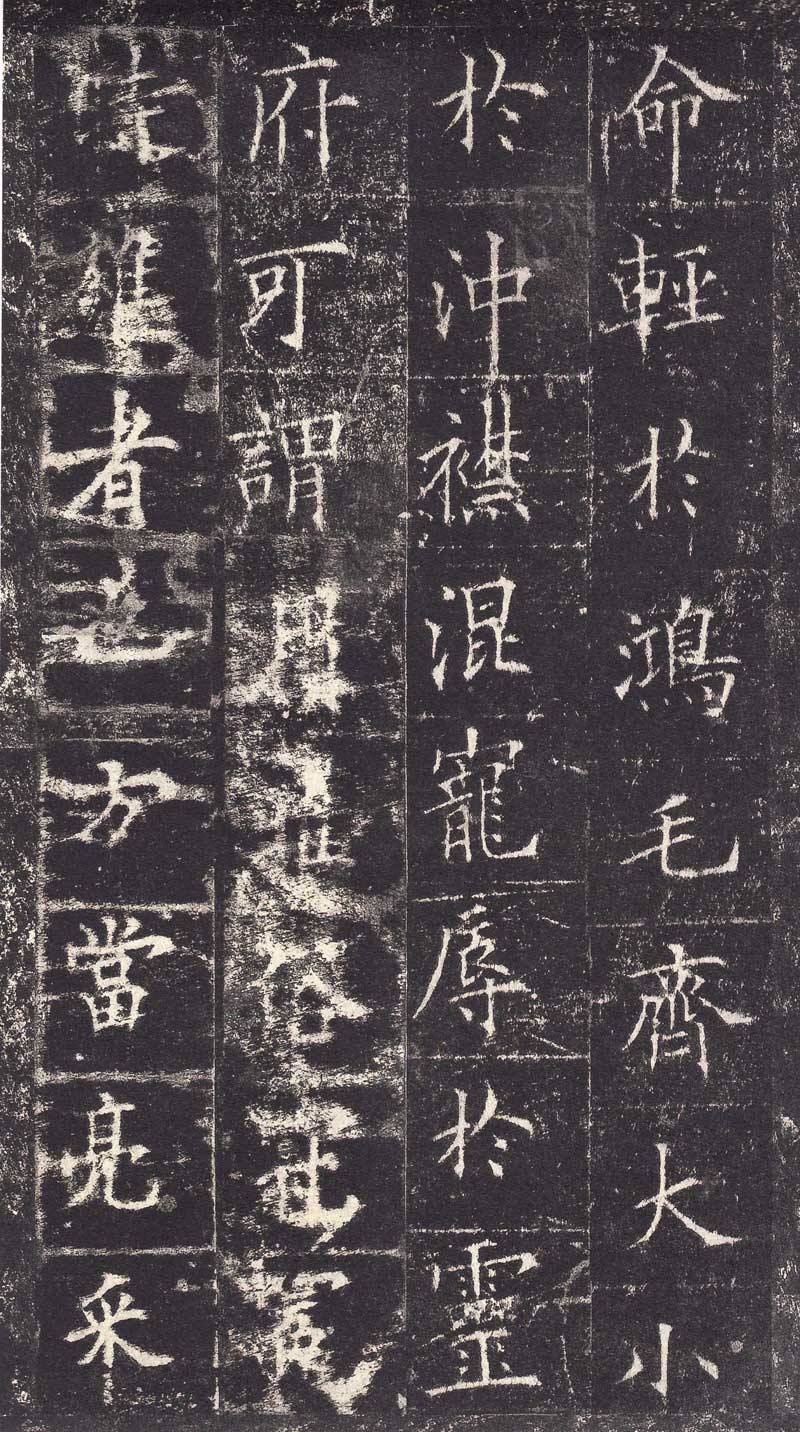 命輕於鴻毛齊大小
於沖襟混寵辱於靈
府可謂雅俗
雄者也方當亮采